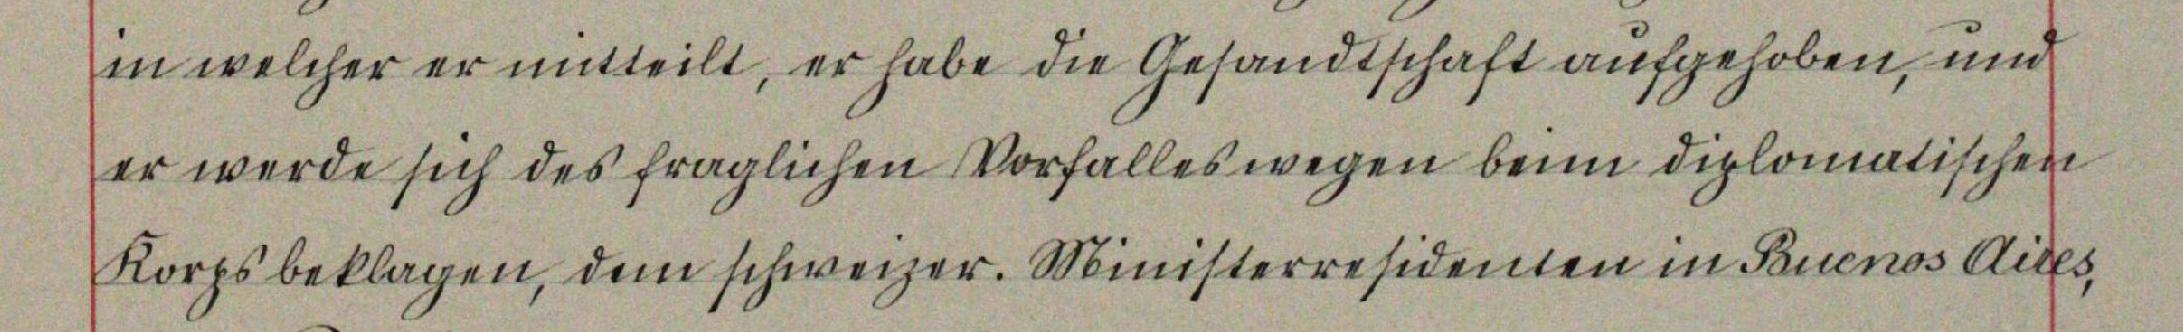 in welcher er mitteilt, er habe die Gesandtschaft aufgehoben, und
er werde sich des fraglichen Vorfalles wegen beim diplomatischen
Korps beklagen, dem schweizer. Ministerresidenten in Buenos Aires,